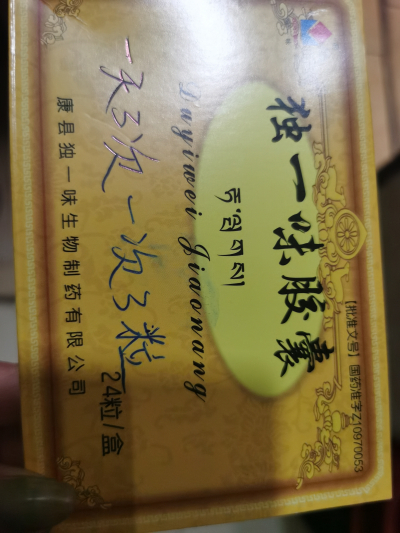 独一味胶囊
【批准文号】国药准字Z10970053
Duyiwei Jiaonang
一天3次一次3粒
24粒/盒
康县独一味生物制药有限公司